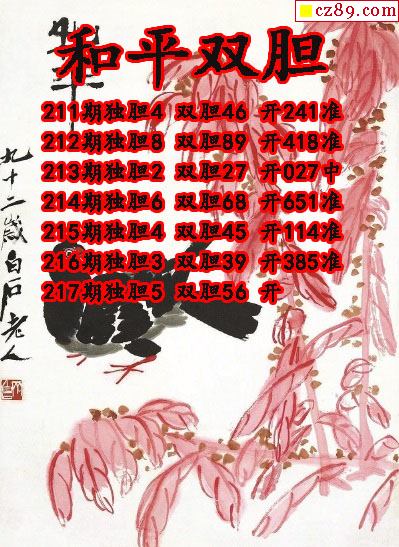 cz89.com
和平双胆
211期独胆4 双胆46 开241准
212期独胆8 双胆89 开418准
213期独胆2 双胆27 开027中
214期独胆6 双胆68 开651准
215期独胆4 双胆45 开114准
216期独胆3 双胆39 开385准
217期独胆5 双胆56 开
九十二岁白石老人